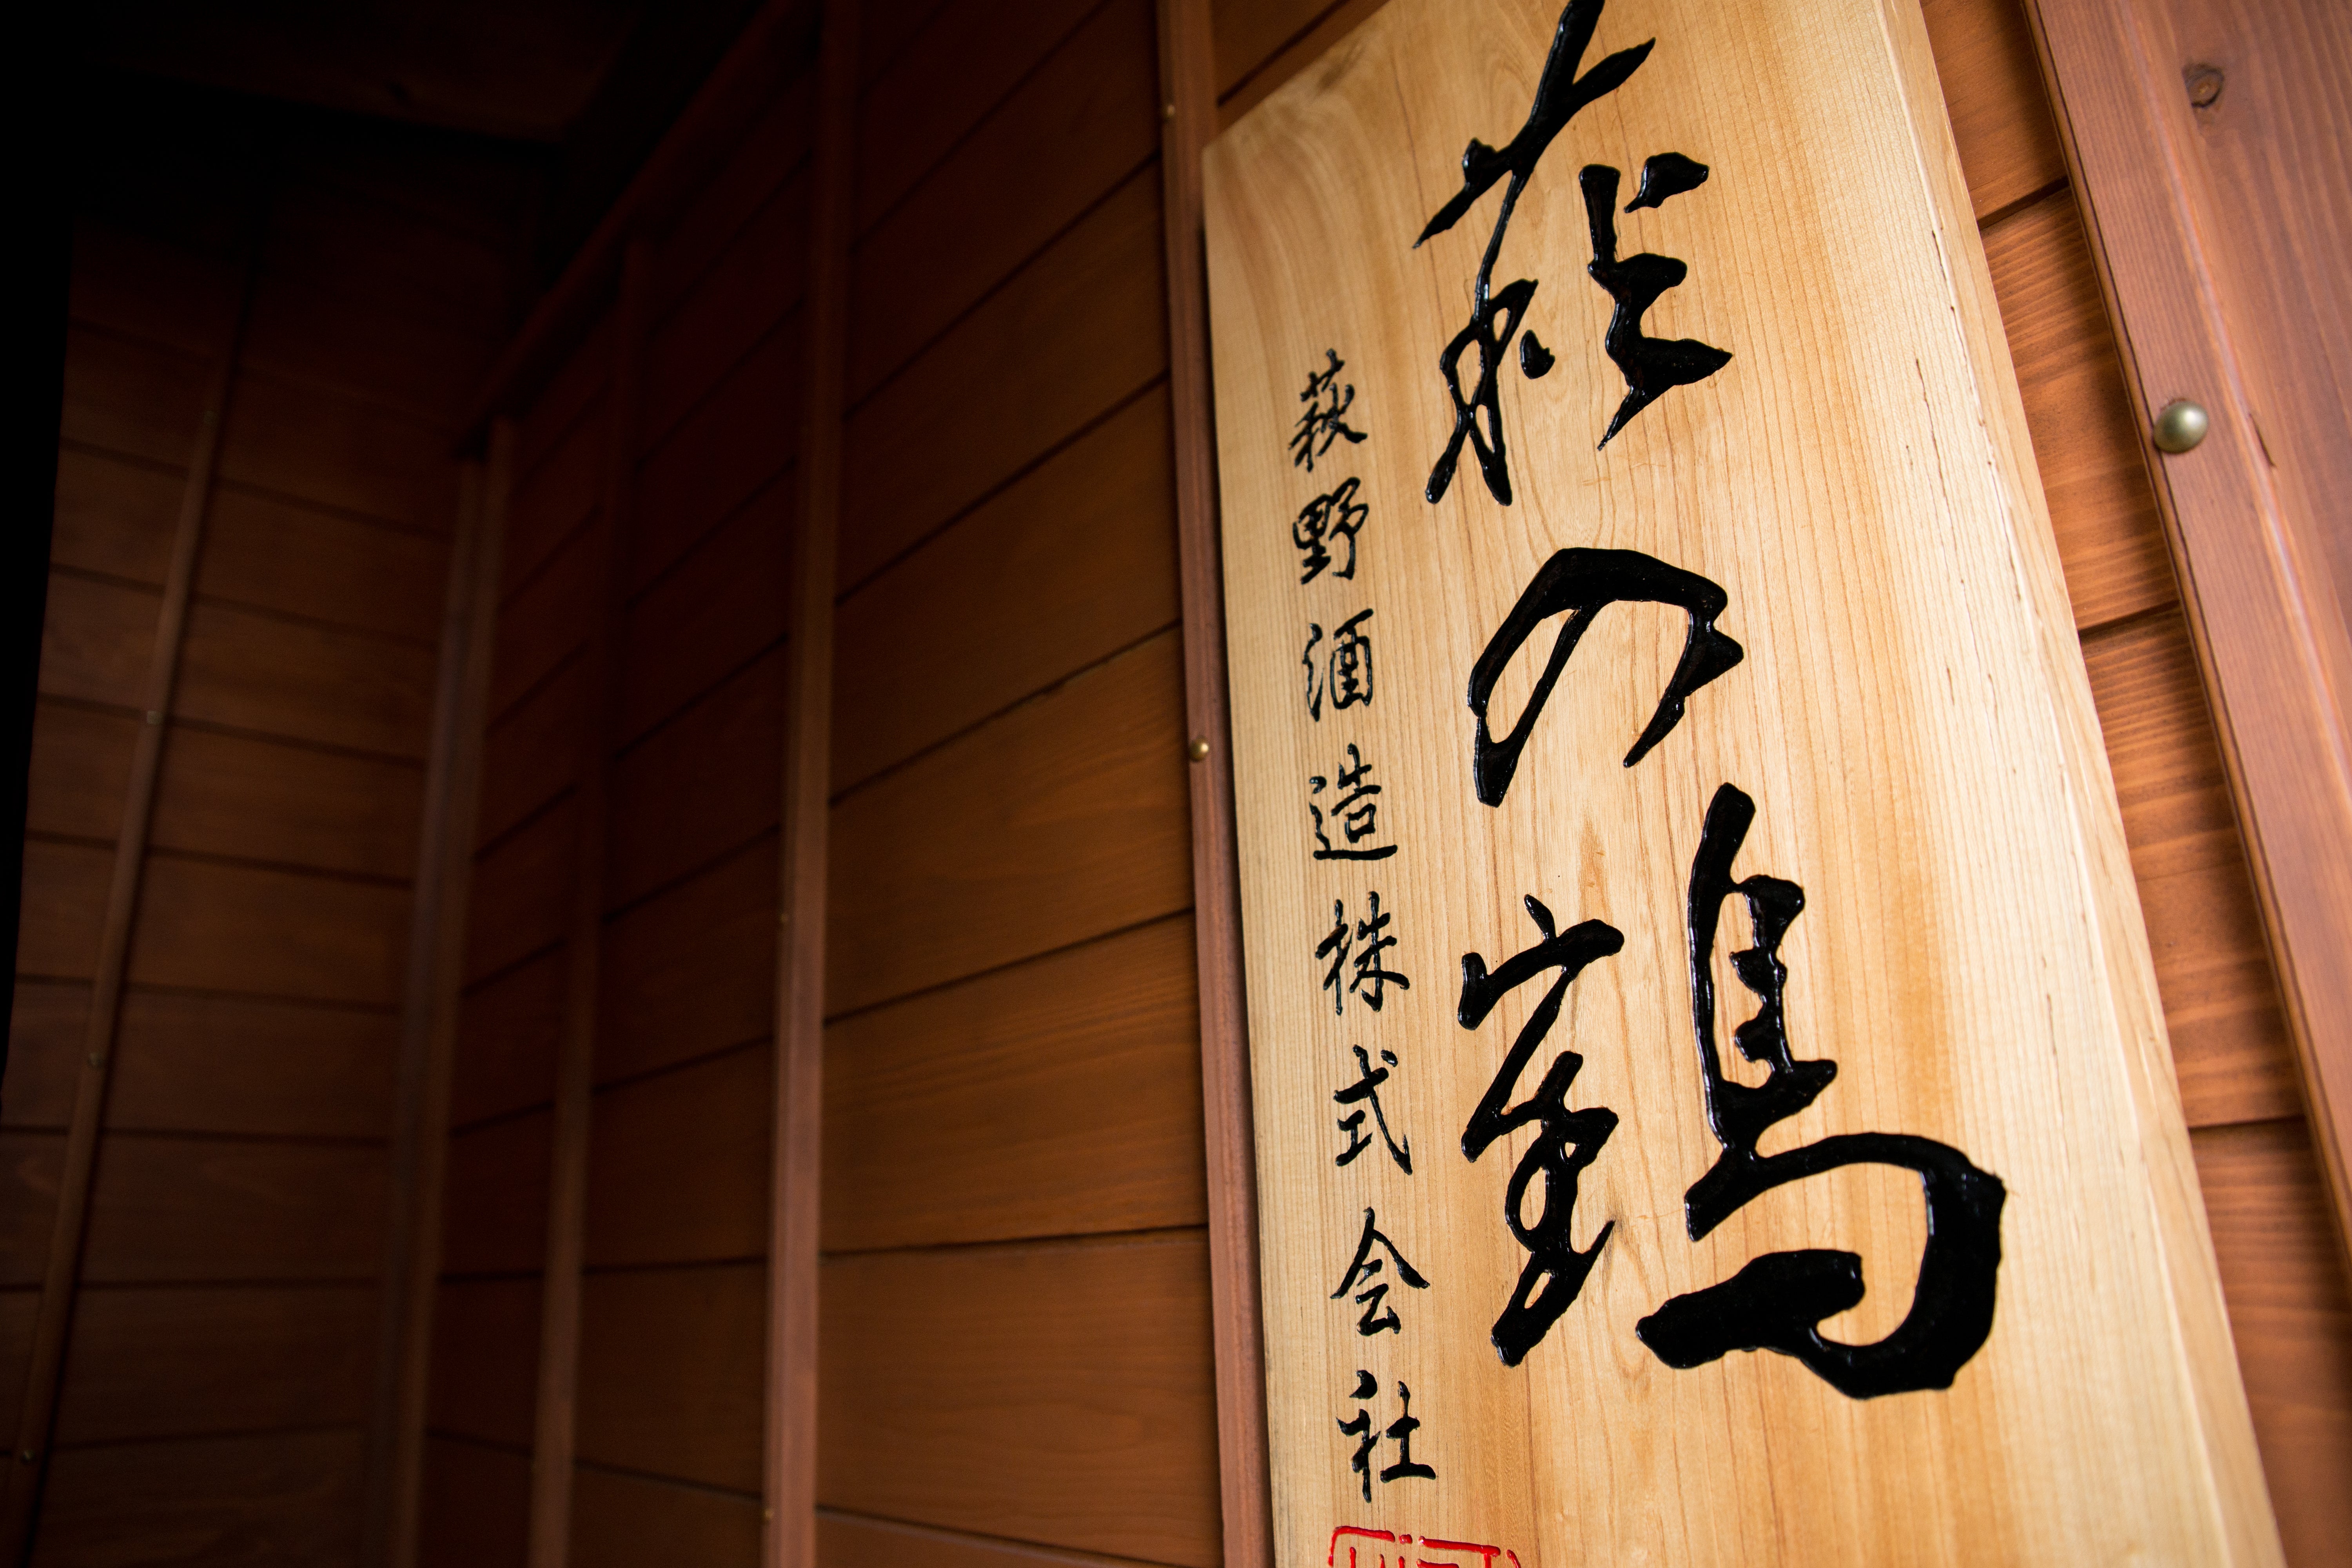 萩の鶴
萩野酒造株式会社